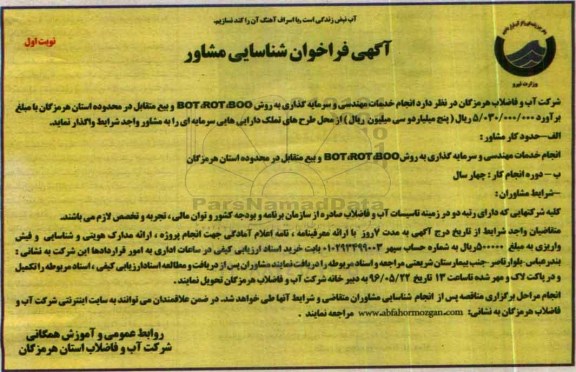 آب نبض زندگی است ،با اسراف آهنگ آن را کند نسازیم.
نوبت اول
آگهی فراخوان شناسایی مشاور
وزارت نیرو
شرکت آب و فاضلاب هرمزگان در نظر دارد انجام خدمات مهندسی و سرمایه گذاری به روش BOT،ROT،BOO و بیع متقابل در محدوده استان هرمزگان با مبلغ
برآورد ۵/۰۳۰/۰۰۰/۰۰۰ ریال ( پنج میلیارد و سی میلیون ریال ) از محل طرح های تملک دارایی هایی سرمایه ای را به مشاور واجد شرایط واگذار نماید.
الف-حدود کار مشاور :
انجام خدمات مهندسی و سرمایه گذاری به روش BOT،ROT،BOO و بیع متقابل در محدوده استان هرمزگان
ب - دوره انجام کار : چهار سال
-شرایط مشاوران :
کلیه شرکتهایی که دارای رتبه دو در زمینه تاسیسات آب و فاضلاب صادره از سازمان برنامه و بودجه کشور و توان مالی ، تجربه و تخصص لازم می باشند.
متقاضیان واجد شرایط از تاریخ درج آگهی به مدت ۷روز با ارائه معرفینامه ، نامه اعلام آمادگی جهت انجام پروژه ، ارائه مدارک هویتی و شناسایی و فیش
واریزی به مبلغ ۵۰۰۰۰۰ریال به شماره حساب سپهر ۰۱۰۲۹۳۴۹۹۰۰۳ بابت خرید اسناد ارزیابی کیفی در ساعات اداری به امور قراردادها این شرکت به نشانی :
بندرعباس -بلوارناصر -جنب بیمارستان شریعتی مراجعه و اسناد مربوطه را دریافت نمایند مشاوران پس از دریافت و مطالعه اسنادارزیابی کیفی ، اسناد مربوطه را تکمیل
و در پاکت لاک و مهر شده تاساعت ۱۳ تاریخ ۹۶/۰۵/۲۲ به دبیر خانه شرکت آب و فاضلاب هرمزگان تحویل نمایند.
انجام مراحل برگزاری مناقصه پس از انجام شناسایی مشاوران متقاضی و شرایط آنها طی خواهد شد. در ضمن علاقمندان می توانند به سایت اینترنتی شرکت آب و
فاضلاب هرمزگان به نشانی: www.abfahormorgan.com مراجعه نمایند .
روابط عمومی و آموزش همگانی
شرکت آب و فاضلاب استان هرمزگان
ParsNamadData